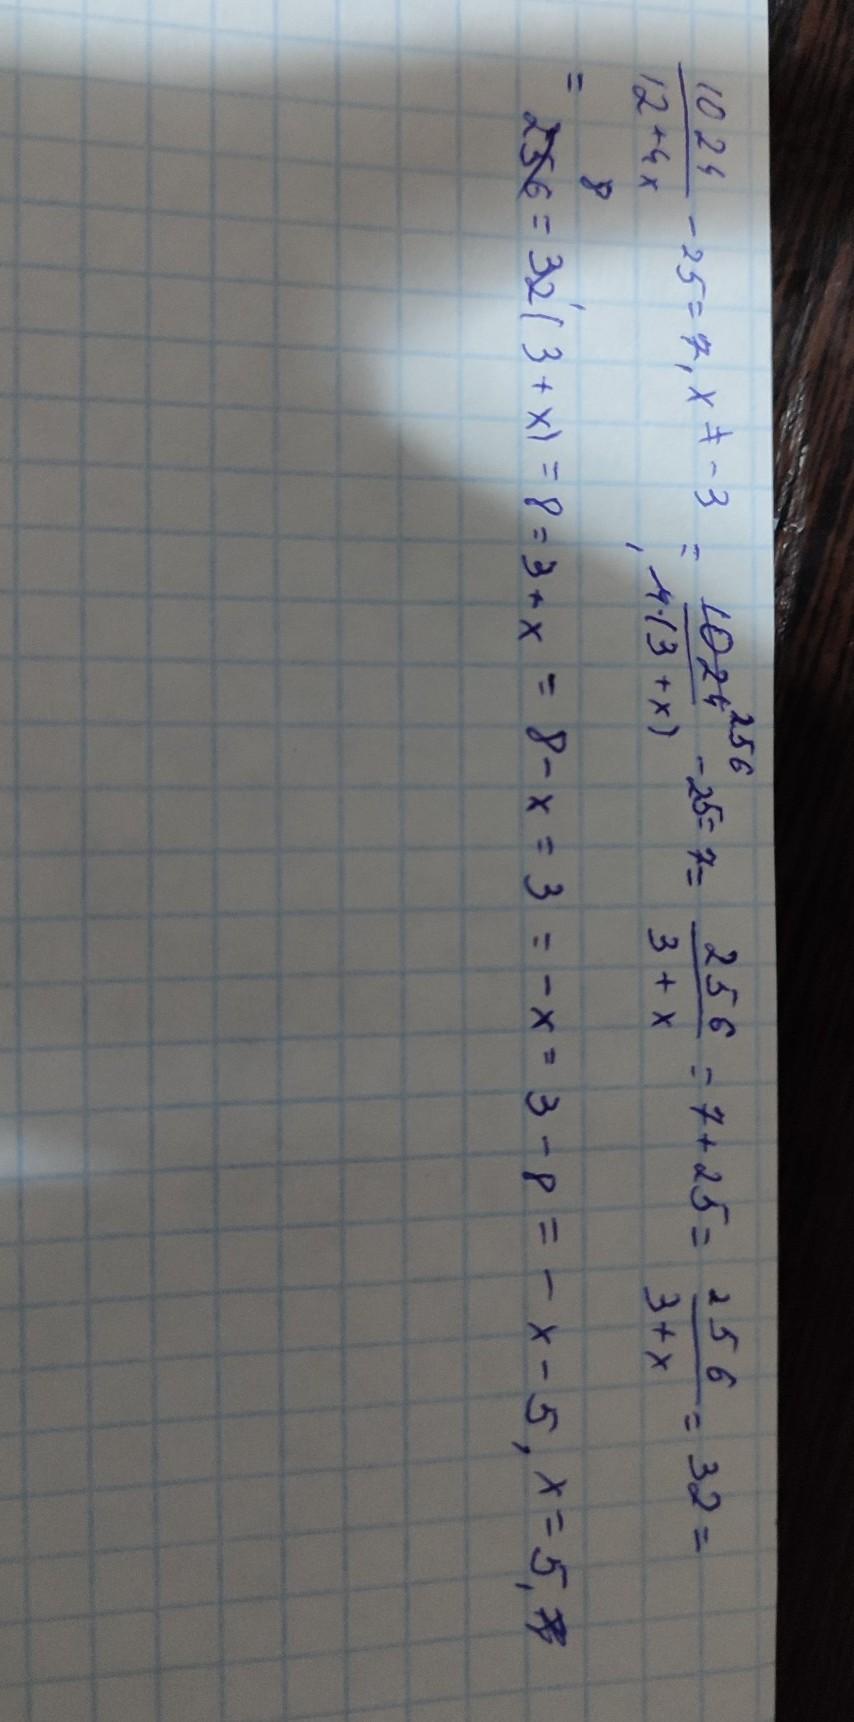 1024/(12+4x) - 25 = 7, x ≠ -3 = 1024 256/4·(3+x) - 25 = 7 = 256/(3+x) = 7 + 25 = 256/(3+x) = 32 =
= 256 8 = 32 1 (3 + x) = 8 = 3 + x = 8 - x = 3 = - x = 3 - 8 = - x - 5, x = 5,